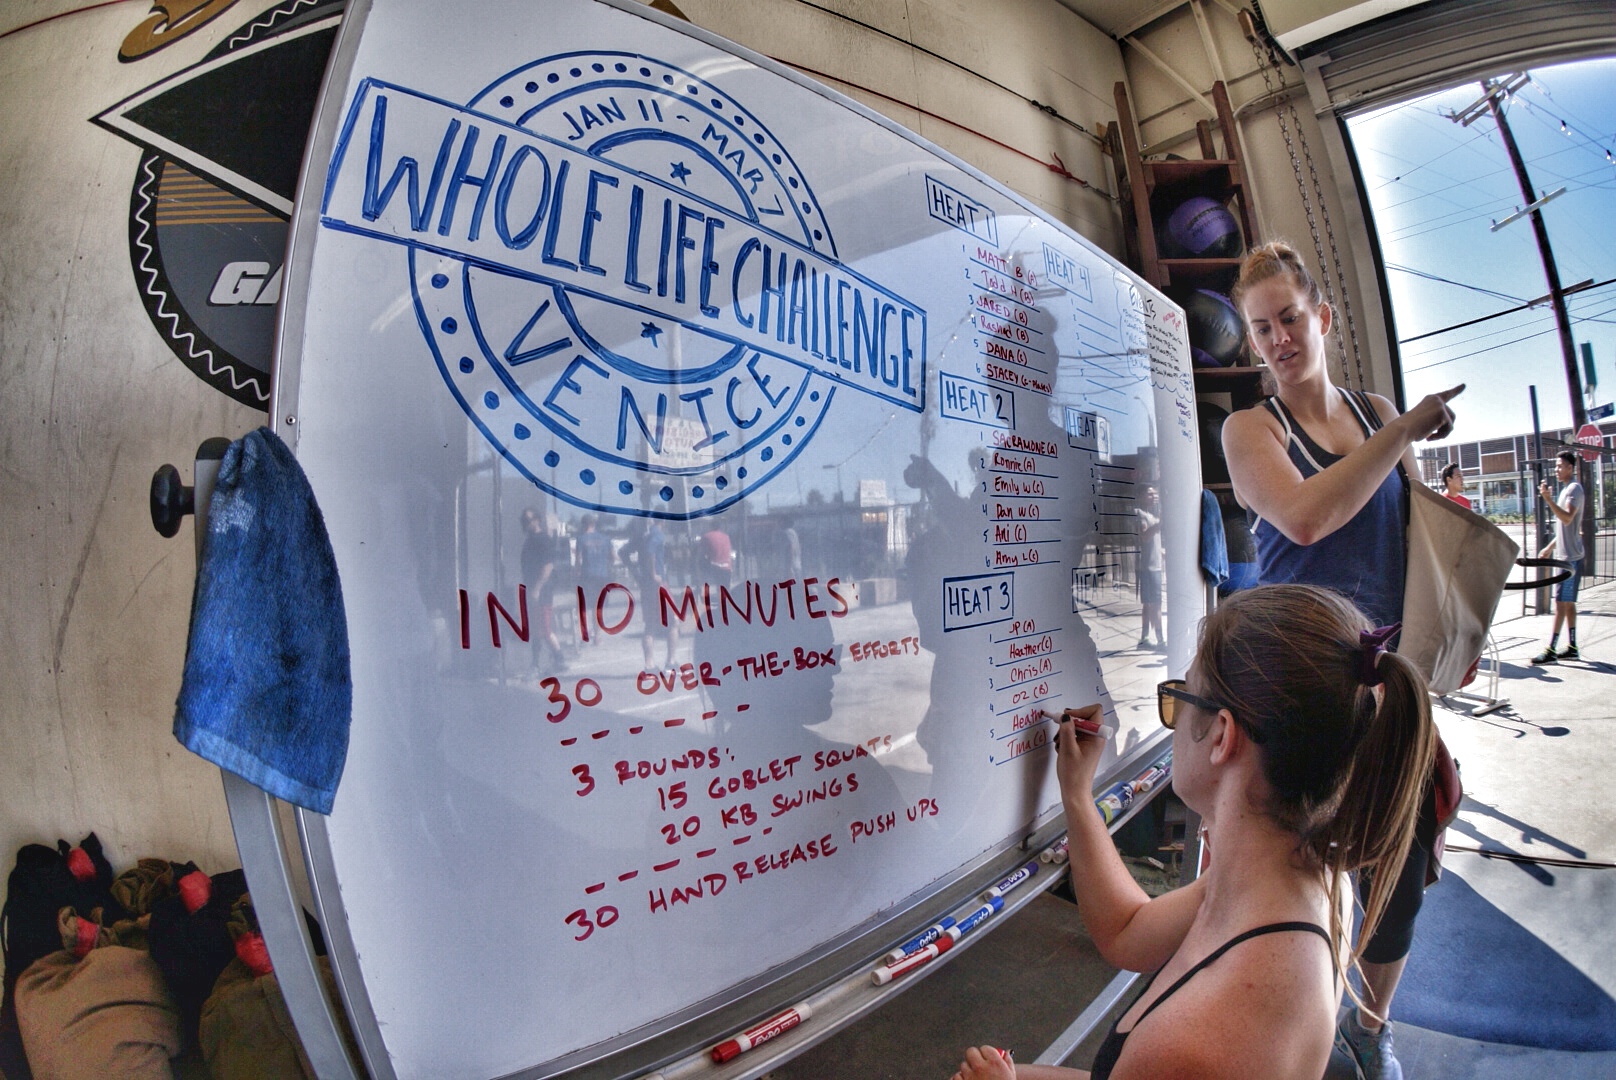 JAN 11 - MAR 7
WHOLE LIFE CHALLENGE
VENICE
IN 10 MINUTES:
30 OVER-THE-BOX EFFORTS
3 ROUNDS:
15 GOBLET SQUATS
20 KB SWINGS
30 HAND RELEASE PUSH UPS
HEAT 1
1 MATT B (A)
2 Todd H (B)
3 JARED (B)
4 Rashad (B)
5 DANA (C)
6 STACEY
HEAT 2
1 SACRAMONE (A)
2 Ronnie (A)
3 Emily W (C)
4 Dan W (C)
5 Ani (C)
6 Amy L (C)
HEAT 3
1 JP (A)
2 Heather (C)
3 Chris (A)
4 OZ (B)
5 Heath
6 Tina (C)
HEAT 4
1
HEAT 5
GA
EXPO
STOP